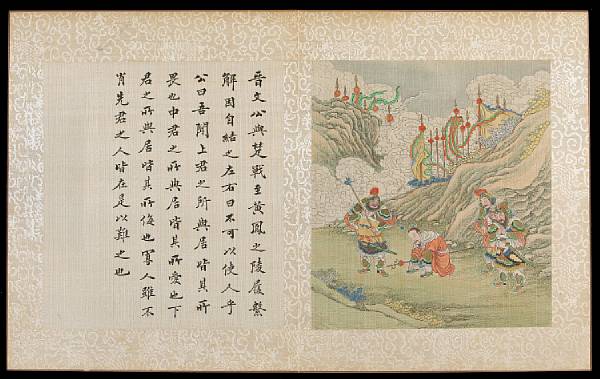 晉文公與楚戰至黃鳳之陵履繫
解因自結之左右曰不可以使人乎
公曰吾聞上君之所與居皆其所
畏也中君之所與居皆其所愛也下
君之所與居皆其所侮也寡人雖不
肖先君之人皆在是以難之也